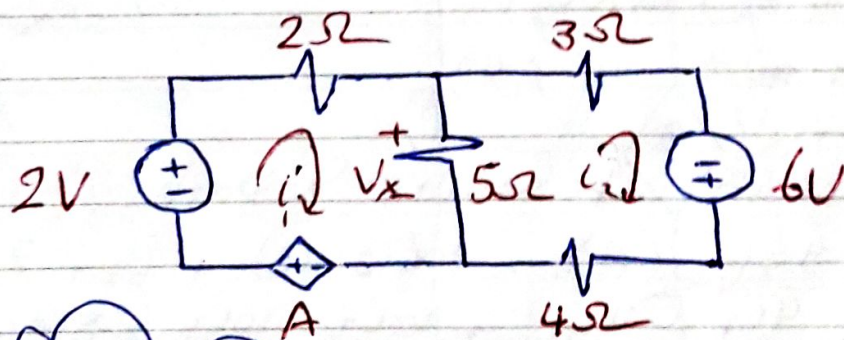 2Ω 3Ω
+ -
2V i₁ + Vx 5Ω i₂ - + 6V
+ -
A 4Ω